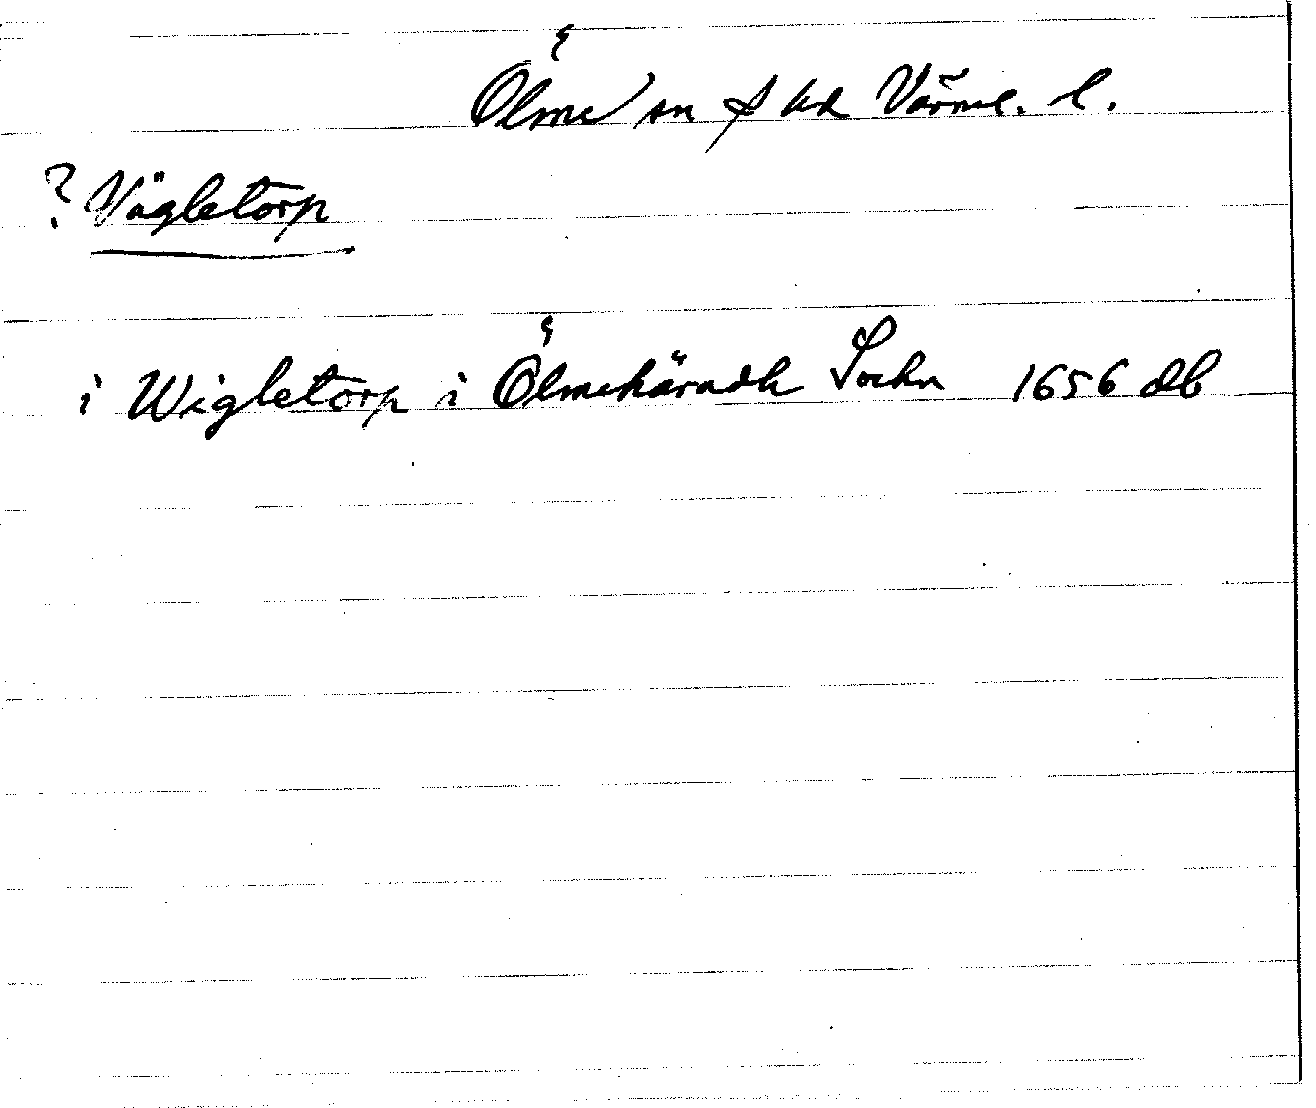 Ölme sn & hd Värml. l.
? Vägletorp
i Wigletorp i Ölmehäradh Sochn 1656 db